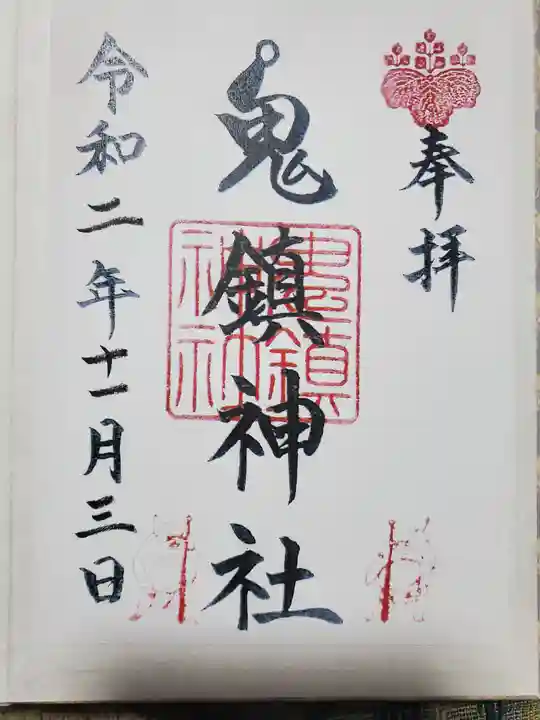 奉拝
鬼鎮神社
鬼鎮神社
令和二年十一月三日